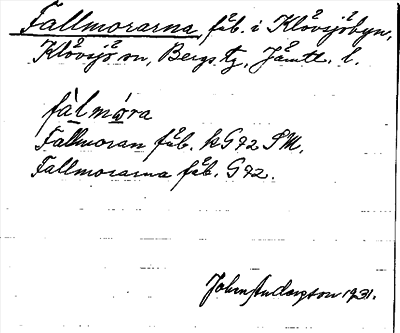 Fallmorarna fäb. i Klövsjöbyn,
Klövsjö sn, Bergs tg, Jämtl. l.
fàlmóra
Fallmoran fäb. kG92 SM.
Fallmorarna fäb. G92.
John Andersson 1931.